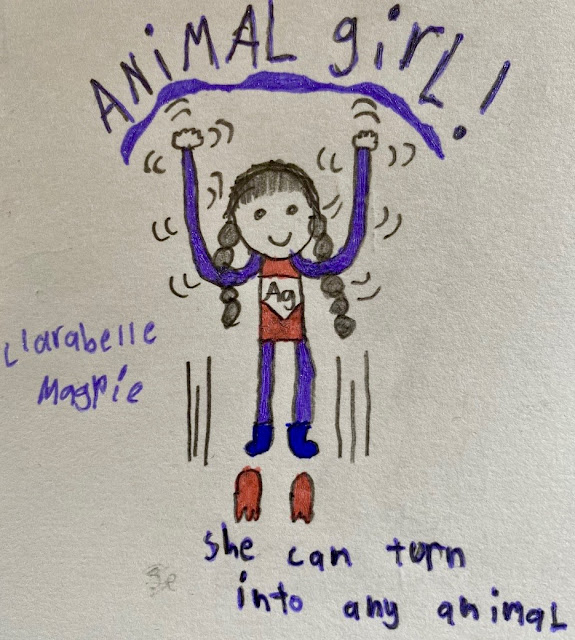 ANiMAL girL!
Ag
Clarabelle
Magpie
she can turn
into any animaL